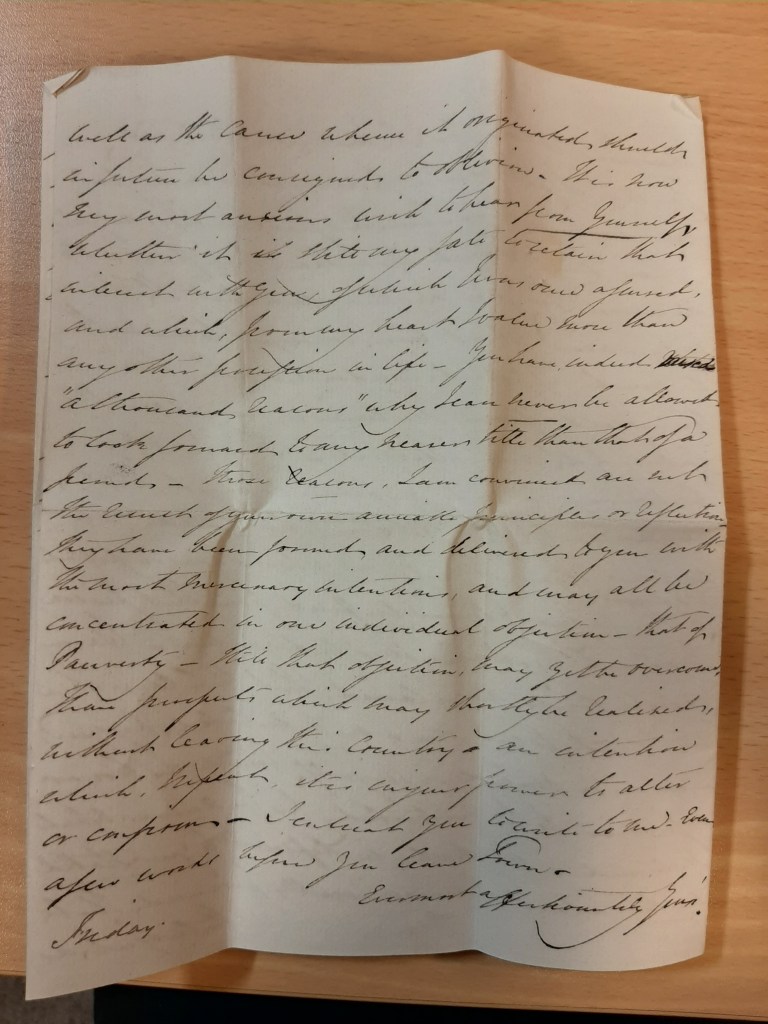 well as the cause whence it originated should
in future be consigned to oblivion - It is now
my most anxious wish to hear from Yourself,
whether it is still my fate to retain that
interest with You, of which I was once assured,
and which, from my heart I value more than
any other possession in life - You have, indeed
"a thousand reasons" why I can never be allowed
to look forward to any nearer title than that of a
friend - those reasons, I am convinced are not
the result of your own amiable principles or reflection,
they have been formed and delivered to you with
the most mercenary intentions, and may all be
concentrated in one individual objection - that of
Pauverty - Still that objection, may yet be overcome,
I have prospects which may shortly be realized,
without leaving this Country - an intention
which, I repeat, it is in your power to alter
or confirm - I entreat you to write to me - Even
a few words before you leave Town -
Ever most affectionately Yours.
Friday.